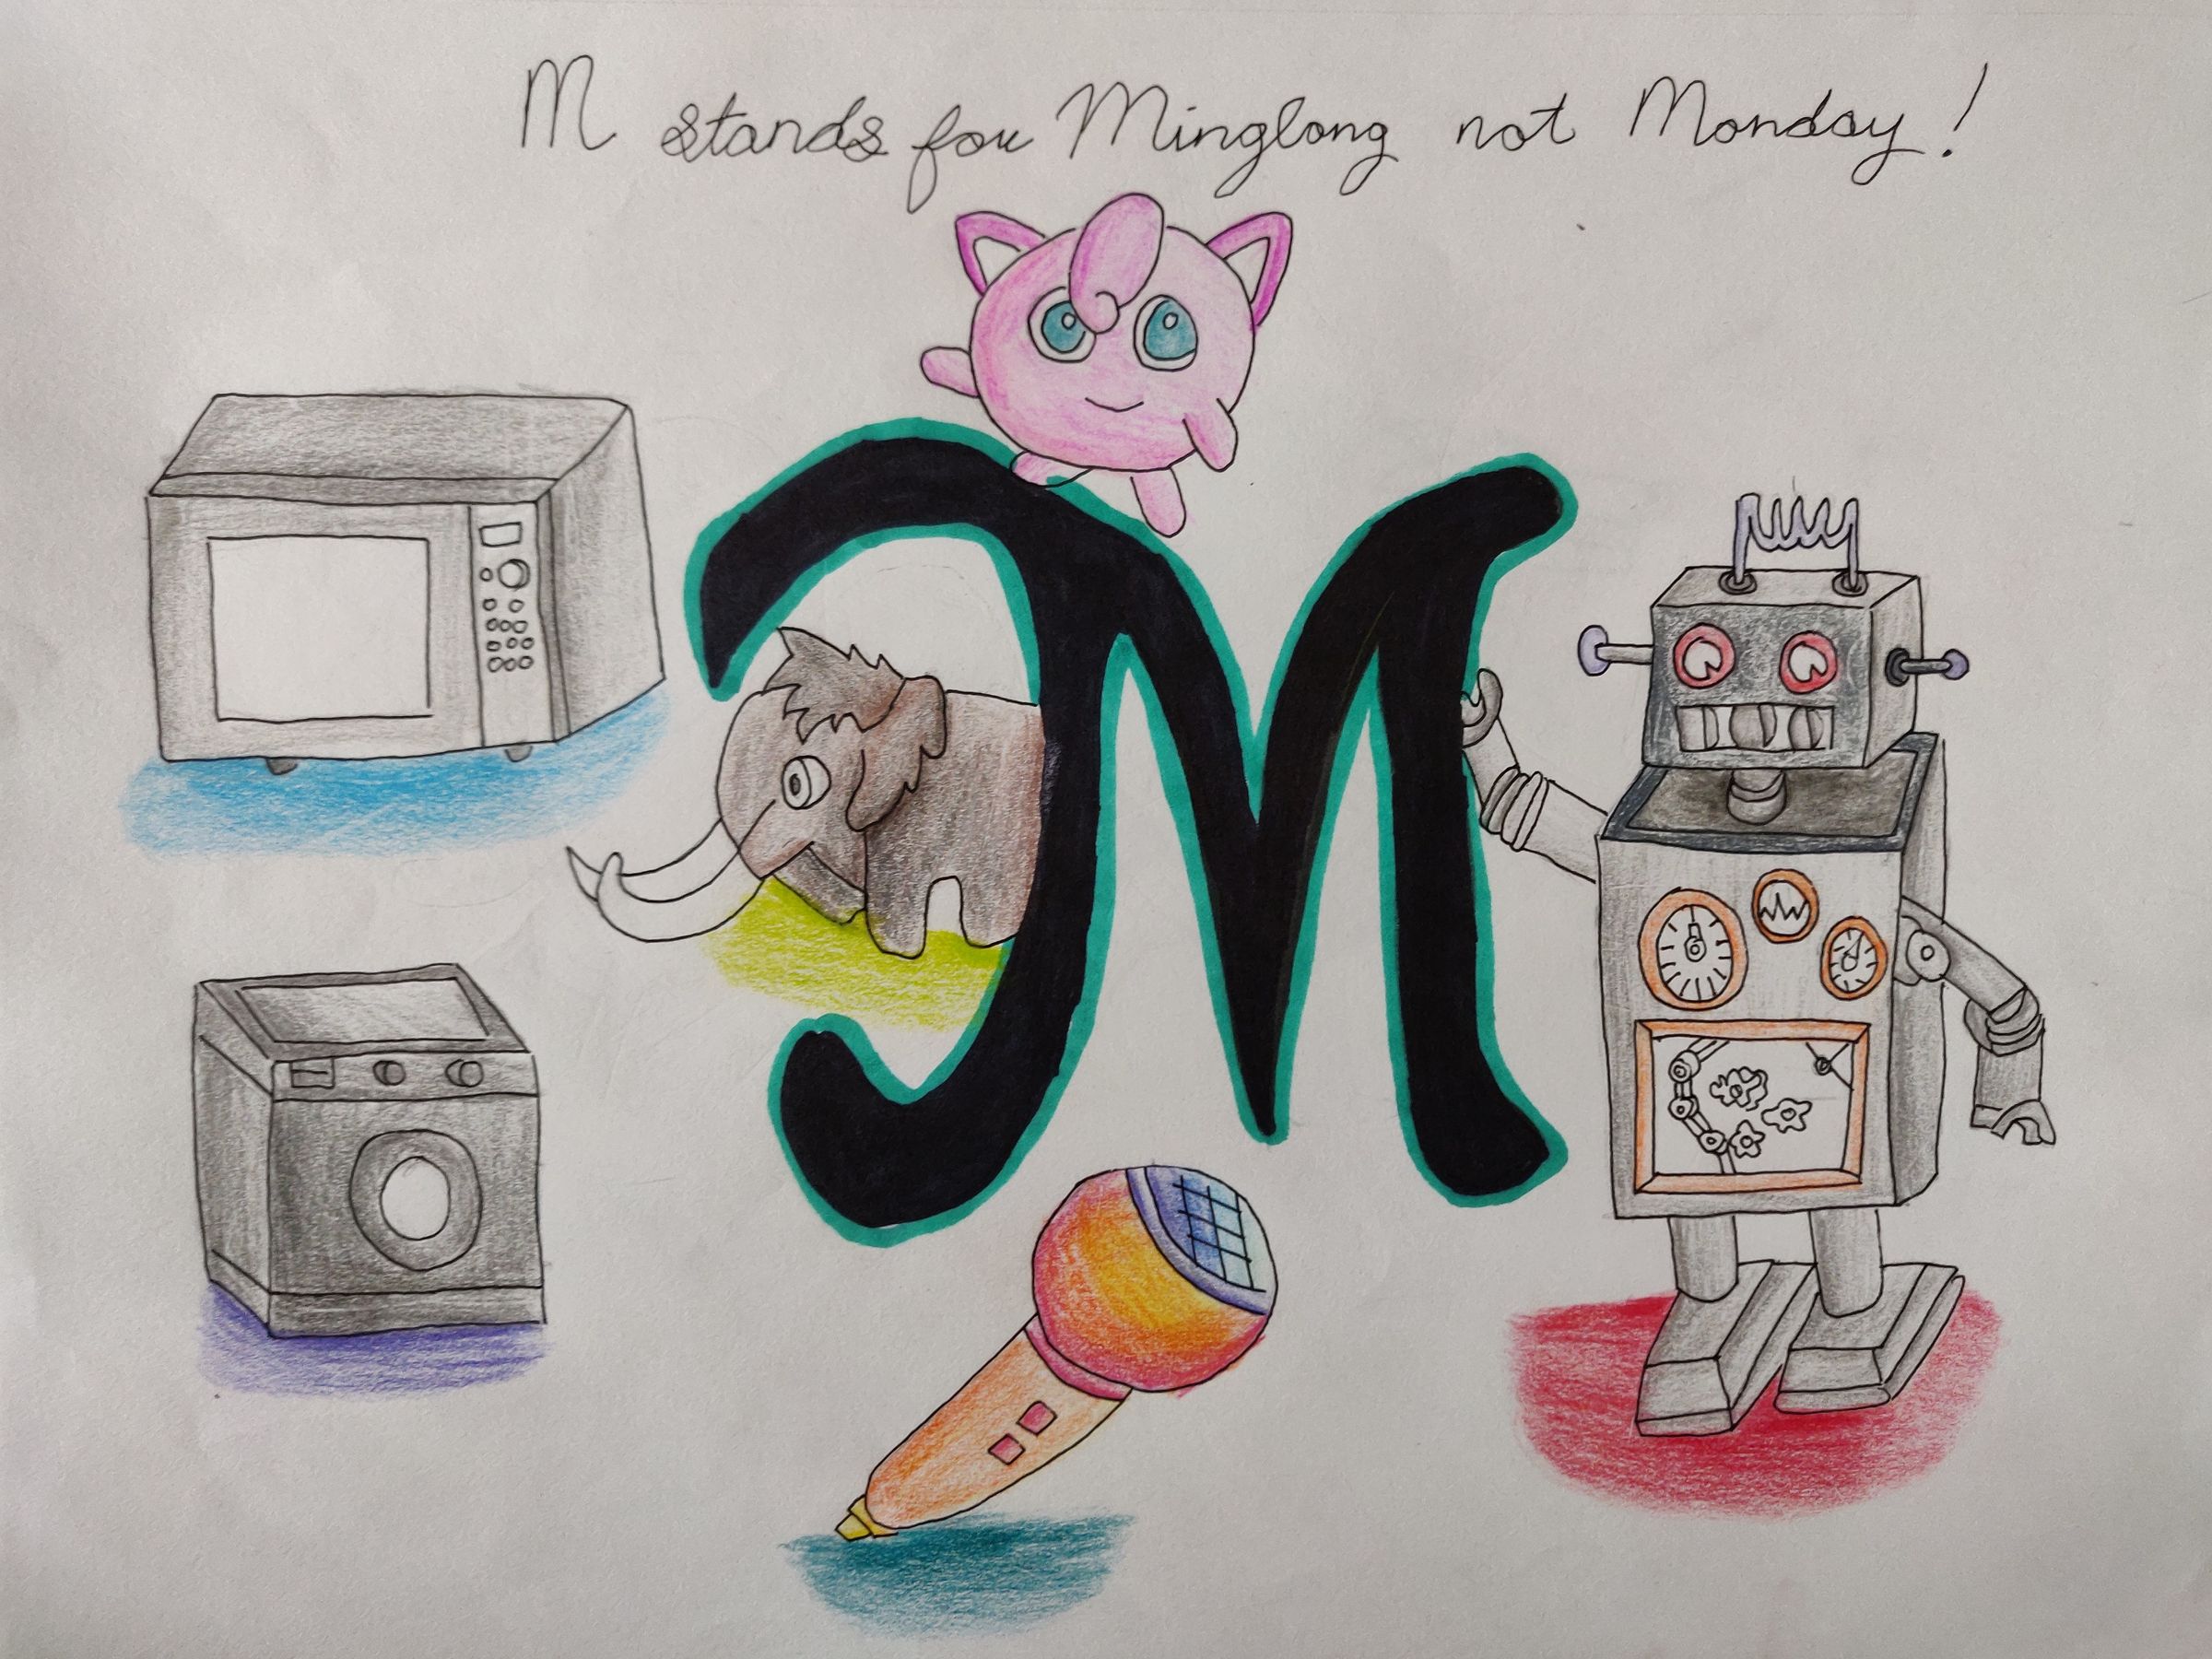 M stands for Minglong not Monday!
M